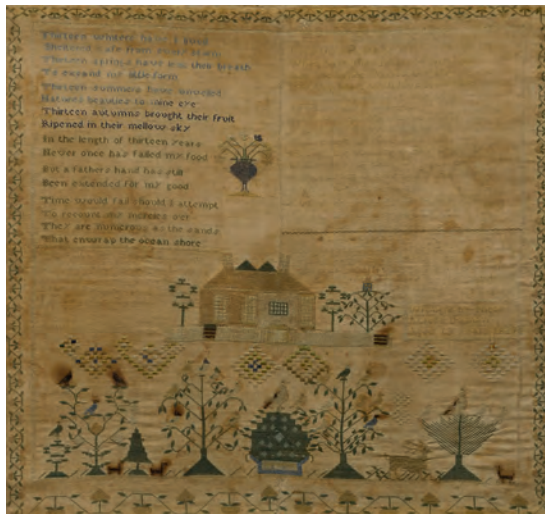 Thirteen winters have I
Sheltered safe from every storm
Thirteen springs have breath
To expand my form
Thirteen summers have unveiled
Natures beauties to mine eye
Thirteen autumns brought their fruit
Ripened in their mellow sky
In the length of thirteen years
Never once has failed my food
But a fathers hand has still
Been extended for my good
Time would fail should I attempt
To recount the mercies oer
They are numerous as the sands
That enwrap the ocean shore